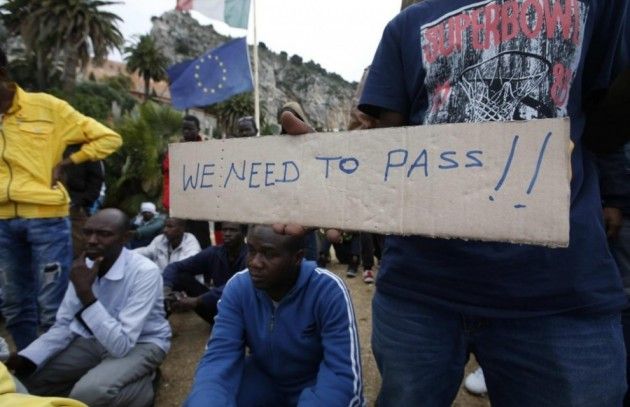 SUPERBOWL
77 83
WE NEED TO PASS!!